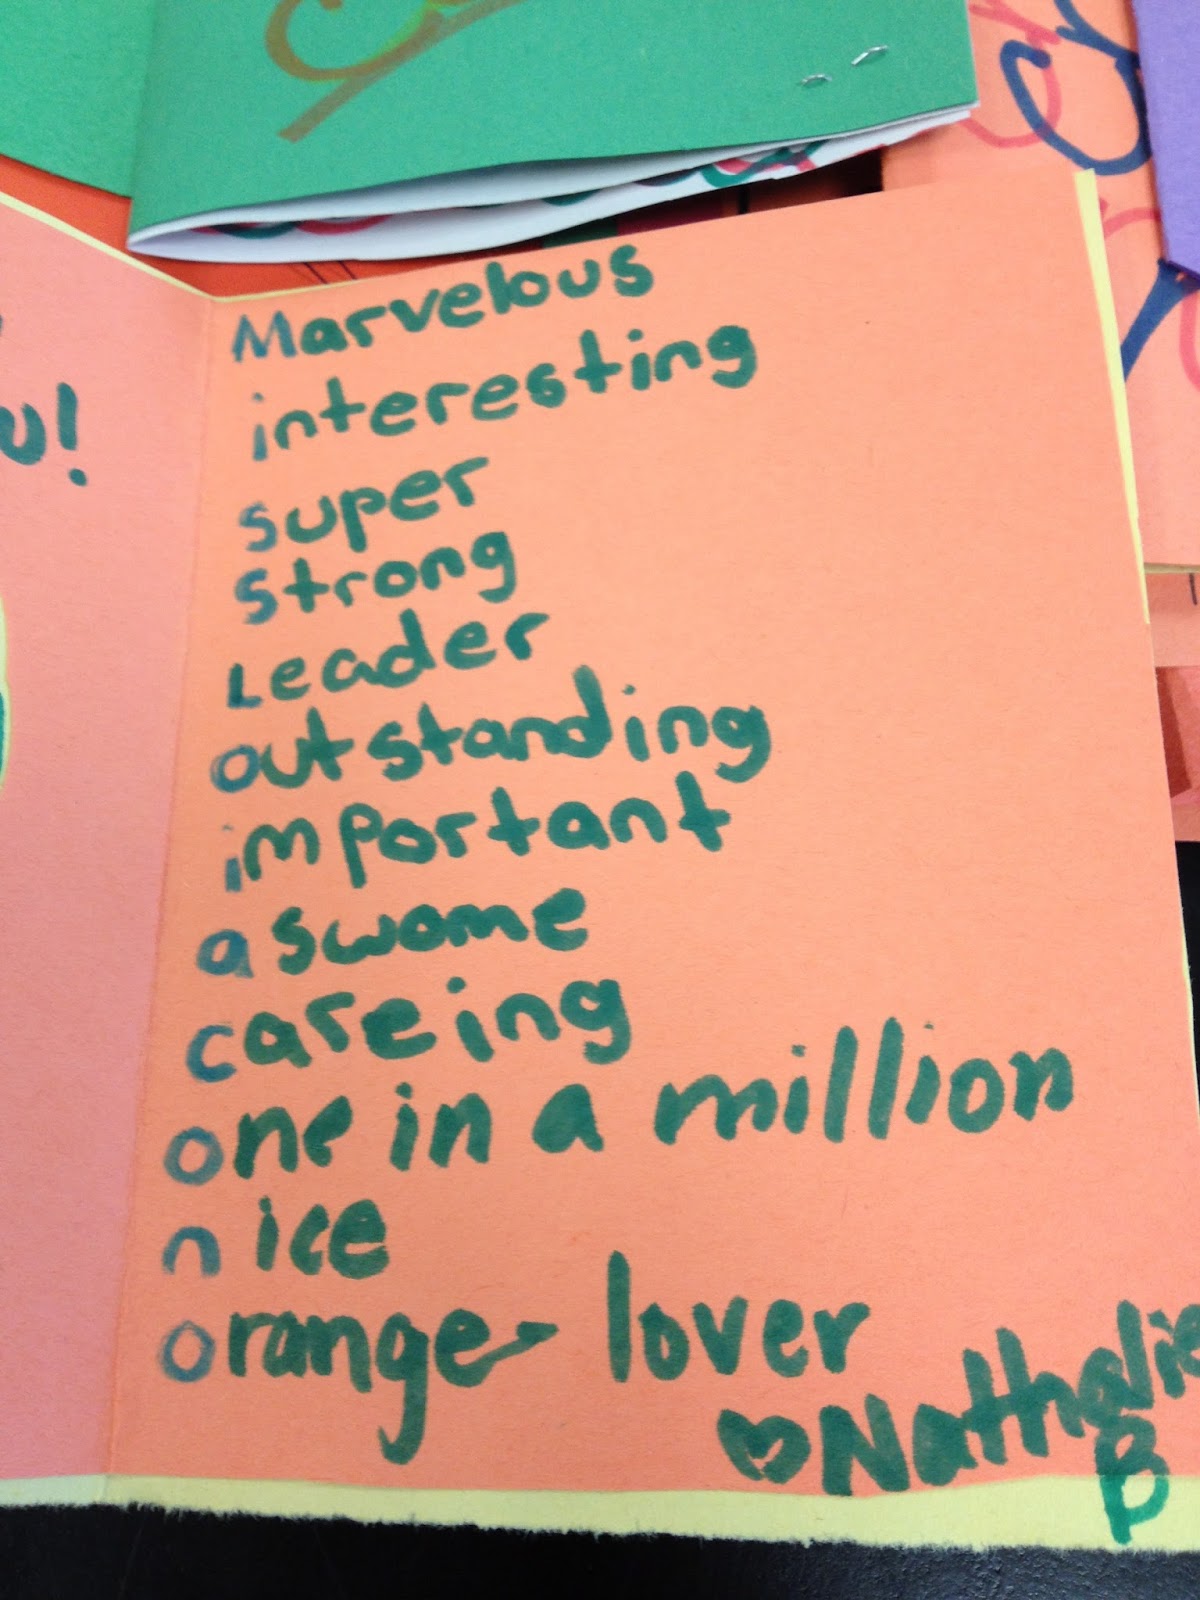 u!
Marvelous
interesting
super
strong
Leader
outstanding
important
aswome
careing
one in a million
nice
orange lover
Nathalie
B